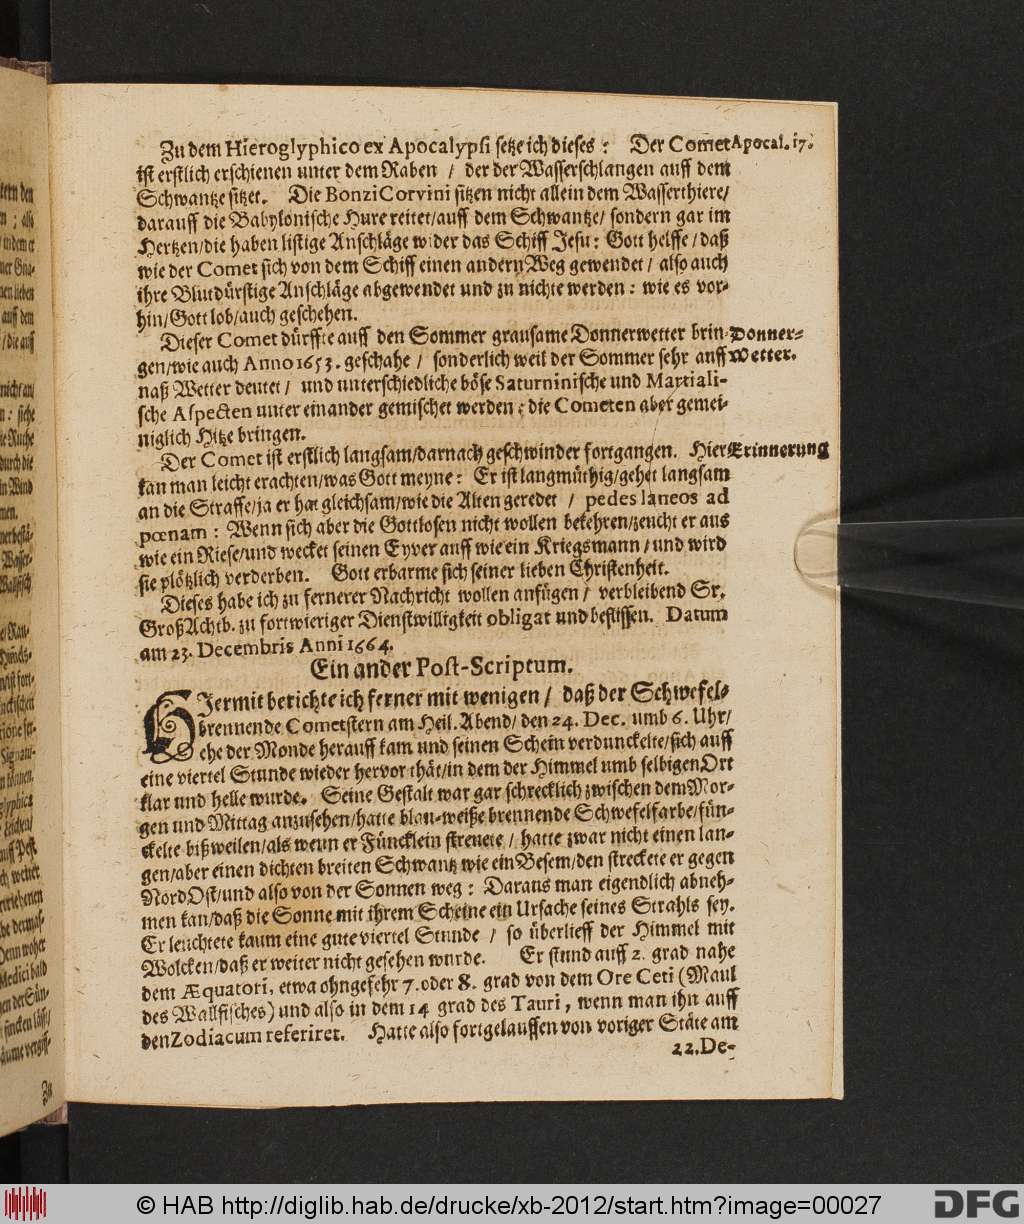 Zu dem Hieroglyphico ex Apocalypsi setze ich dieses: Der Comet Apocal. 17.
ist erstlich erschienen unter dem Raben / der der Wasserschlangen auff dem
Schwantze sitzet. Die Bonzi Corvini sitzen nicht allein dem Wasserthiere/
darauff die Babylonische Hure reitet/auff dem Schwantze/ sondern gar im
Hertzen/die haben listige Anschläge wider das Schiff Jesu: Gott helffe / daß
wie der Comet sich von dem Schiff einen andern Weg gewendet / also auch
ihre Blutdürstige Anschläge abgewendet und zu nichte werden: wie es vor-
hin/Gott lob/auch geschehen.
Dieser Comet dürffte auff den Sommer grausame Donnerwetter brin- Donner-
gen/wie auch Anno 1653. geschahe / sonderlich weil der Sommer sehr auff Wetter.
naß Wetter deutet / und unterschiedliche böse Saturninische und Martiali-
sche Aspecten unter einander gemischet werden; die Cometen aber gemei-
niglich Hitze bringen.
Der Comet ist erstlich langsam/darnach geschwinder fortgangen. Hier Erinnerung
kan man leicht erachten/was Gott meyne: Er ist langmüthig/gehet langsam
an die Straffe/ja er hat gleichsam/wie die Alten geredet / pedes laneos ad
pœnam: Wenn sich aber die Gottlosen nicht wollen bekehren/zeucht er aus
wie ein Riese/und wecket seinen Eyver auff wie ein Kriegsmann / und wird
sie plötzlich verderben. Gott erbarme sich seiner lieben Christenheit.
Dieses habe ich zu fernerer Nachricht wollen anfügen / verbleibend Sr.
Groß Achtb. zu fortwieriger Dienstwilligkeit obligat und beflissen. Datum
am 23. Decembris Anni 1664.
Ein ander Post-Scriptum.
HJermit berichte ich ferner mit wenigen / daß der Schwefel-
brennende Cometstern am Heil. Abend/ den 24. Dec. umb 6. Uhr/
ehe der Monde herauff kam und seinen Schein verdunckelte/sich auff
eine viertel Stunde wieder hervor thät/in dem der Himmel umb selbigen Ort
klar und helle wurde. Seine Gestalt war gar schrecklich zwischen dem Mor-
gen und Mittag anzusehen/hatte blau-weiße brennende Schwefelfarbe/fün-
ckelte bißweilen/als wenn er Füncklein streuete / hatte zwar nicht einen lan-
gen/aber einen dichten breiten Schwantz wie ein Besem/den streckete er gegen
NordOst/und also von der Sonnen weg: Daraus man eigendlich abneh-
men kan/daß die Sonne mit ihrem Scheine ein Ursache seines Strahls sey.
Er leuchtete kaum eine gute viertel Stunde / so überlieff der Himmel mit
Wolcken/daß er weiter nicht gesehen wurde. Er stund auff 2. grad nahe
dem Æquatori, etwa ohngefehr 7. oder 8. grad von dem Ore Ceti (Maul
des Wallfisches) und also in dem 14 grad des Tauri, wenn man ihn auff
den Zodiacum referiret. Hatte also fortgelauffen von voriger Stäte am
22. De-
© HAB http://diglib.hab.de/drucke/xb-2012/start.htm?image=00027
DFG